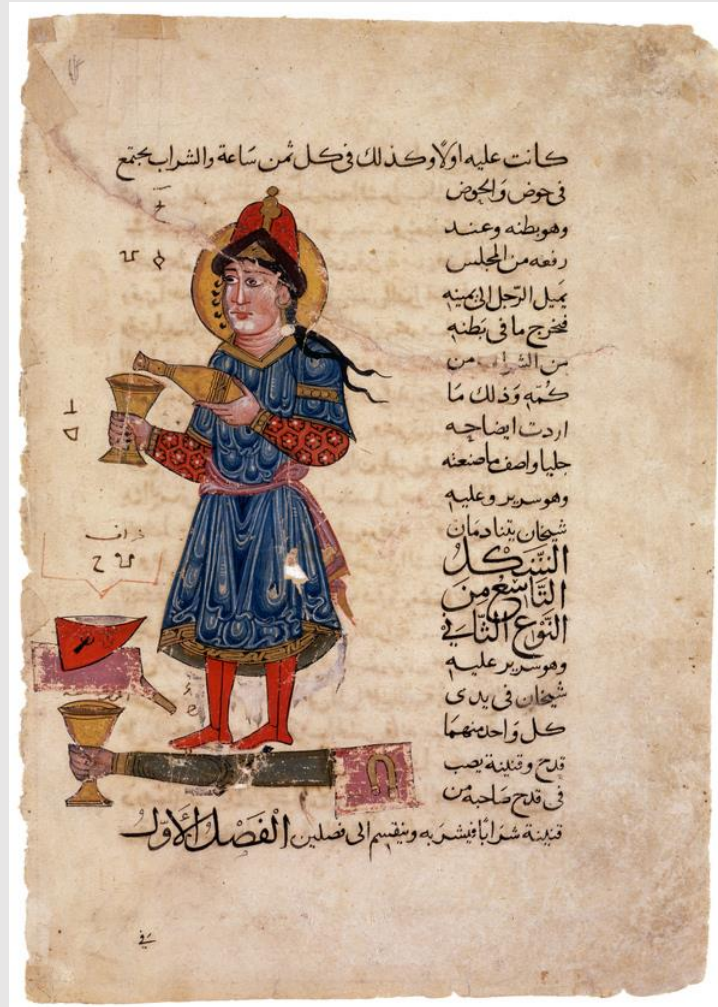 كانت عليه اولا وكذلك في كل ثمن ساعة والشراب يجتمع
في حوض والحوض
وهو بطنه وعند
رفعه من المجلس
يميل الرجل الى يمينه
فيخرج ما في بطنه
من الشراب من
كمه وذلك ما
اردت ايضاحه
جليا واصف ما صنعته
وهو سرير وعليه
شيخان يتنادمان
الشكل
التاسع من
النوع الثاني
وهو سرير عليه
شيخان في يدي
كل واحد منهما
قدح وقنينة يصب
في قدح صاحبه من
قنينة شرابا فيشربه وينقسم الى فصلين الفصل الاول
في